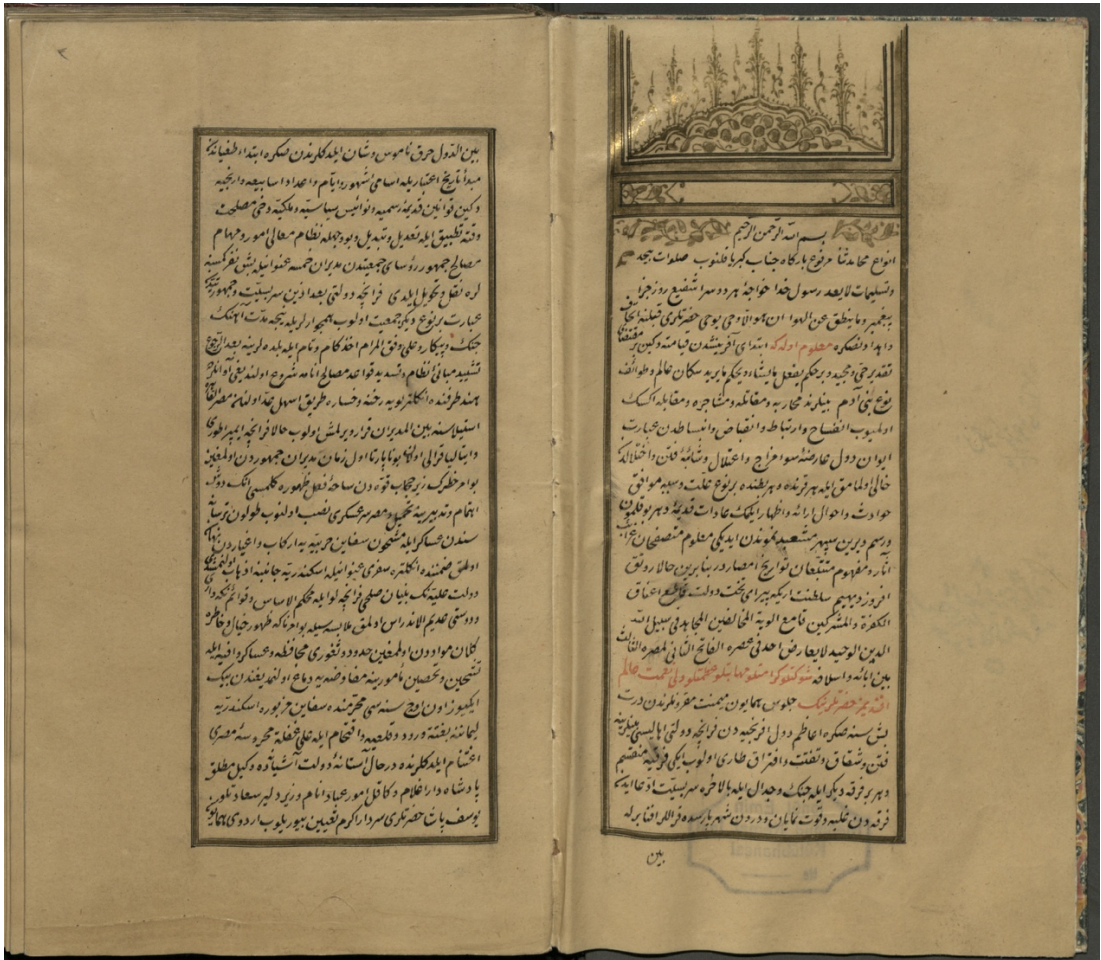 بسم الله الرحمن الرحيم
انواع محامد ثنا مرفوع بارگاه جناب كبريا قلنوب صلوات بيحد
وتسليمات لايعد رسول خدا خواجۀ هر دو سرا شفيع روز جزا
پيغمبر وما ينطق عن الهوا ان هو الا وحى يوحى حضرتلرى قبلنه اتحاف
واهدا ونصكره معلوم اوله كه ابتداى آفرينشدن قيامته دكين بر مقتضاى
تقدير حى ومجيد وبر حكم يفعل ما يشاء ويحكم ما يريد سكان عالم وطوائف
نوع بنى آدم بينلرنده محاربه ومقاتله ومشاجره ومقابله اكسك
اولميوب انفتاح وارتباط وانقباض وانبساطدن عبارت
ايوان دول عارضۀ سوء مزاج واعتلال وشائبۀ فتن واختلالدن
خالى اولمامق ايله هر قرنده وهر بطنده بر نوع علت وسببه موافق
حوادث واحوال ارائه واظهار ايلمك عادات قديمۀ دهر بوقلمون
ورسم ديرين سپهر مشعبد نموندن ايديكى معلوم متصفحان غرائب
آثار ومفهوم متتبعان تواريخ امصاردر بنابرين حالا رونق
افروز ديهيم سلطنت اريكه پيراى تخت دولت قاطع اعناق
الكفرة والمشركين قامع الوية المخالفين المجاهد فى سبيل الله
الدين الوحيد لا يعارض احد فى عصره الفاتح الثانى لمصره الثالث
بين ابائه واسلافه شوكتلو كرامتلو مهابتلو عظمتلو ولى نعمت عالم
افنديمز حضرتلرينك جلوس همايون ميمنت مقرونلرندن درت
بش سنه صكره اعاظم دول افرنجيه دن فرانچه دولتى اهاليسى بينلرينه
فتن وشقاق وتفتت وافتراق طارى اولوب ايكى فرقيه منقسم
وهر بر فرقه ديكر ايله جنك وجدال ايله بالاخره سربسيت ادعا ايدن
فرقه دن غلبه وقوت نمايان ودرون شهر پارسده قراللر افنا برله
بين
بين الدول خرق ناموس وشان ايلدكلرندن صكره ابتداء طغياندن
مبدأ تاريخ اعتباريله اسامئ شهور وايام واعداد اسابيعه وارنجيه
دكين قوانين قديمۀ رسميه ونواميس سياسيه وملكيه دخى مصلحت
وقته تطبيق ايله تعديل وتبديل وبو جهله نظام معالى امور ومهام
مصالح جمهور رؤساى جمعيتدن مديران خمسه عنوانيله بش نفر كمسنه
لره نقل وتحويل ايلدى فرانچه دولتى بعد اذين سربسيت وجمهوريتدن
عبارت بر نوع ديكر جمعيت اولوب همجوارلريله نيجه مدت آهنك
جنك وپيكار وعلى وفق المرام اخذ كام ونام ايله بلده لرينه بعد الرجوع
تشييد مبانئ نظام وتسديد قواعد مصالح انامه شروع اولندیغى آه انلرى
هند طرفنده انكلتره لويه رخنه وخساره طريق اسهل عد اولنان مصر القاهره
استيلاسنه بين المديران قرار ويرلمش اولوب حالا فرانچه ايمپراطورى
وايتاليا قرالى اولان بوناپارتا اول زمان مديران جمهوردن اولمغين
بو امر خطرك زير حجاب قوه دن ساحۀ فعل ظهوره كلمسى انك دوش
اهتمام وتدبيرينه تحميل ومصره سر عسكرى نصب اولنوب طولون ترسانه
سندن عساكر ايله مشحون سفاين حربيه يه اركاب واغياردن نهان
اولمق ضمننده انكلتره سفرى عنوانيله اسكندريه جانبنه اذهاب اولنمشيدى
دولت عليه نك بنيان صلحى فرانچه لو ايله محكم الاساس وقوائم يكجهتى
ودوستى عديم الاندراس اولمق ملابسه سيله بو كونا كه ظهور خيال وخاطره
كلان موادون اولمغين حدود وثغورى محافظه وعساكر وافيه ايله
تشحين وتحصين مأمورينه مفاوضه يه دماغ اولنمديغندن بيك
ايكيوز اون اوچ سنه سى محرمنده سفاين مزبوره اسكندريه
ليماننه بغتة ورود وقلعه يه اقتحام ايله على غفلة محروسۀ مصرى
اغتنام ايلدكلرنده درحال آستانۀ دولت آشيانه ده وكيل مطلق
پادشاه دارا غلام وكافل امور عباد انام وزير دلير سعادتلو
يوسف پاشا حضرتلرى سردار اكرم تعيين بيوريلوب اردوى همايون